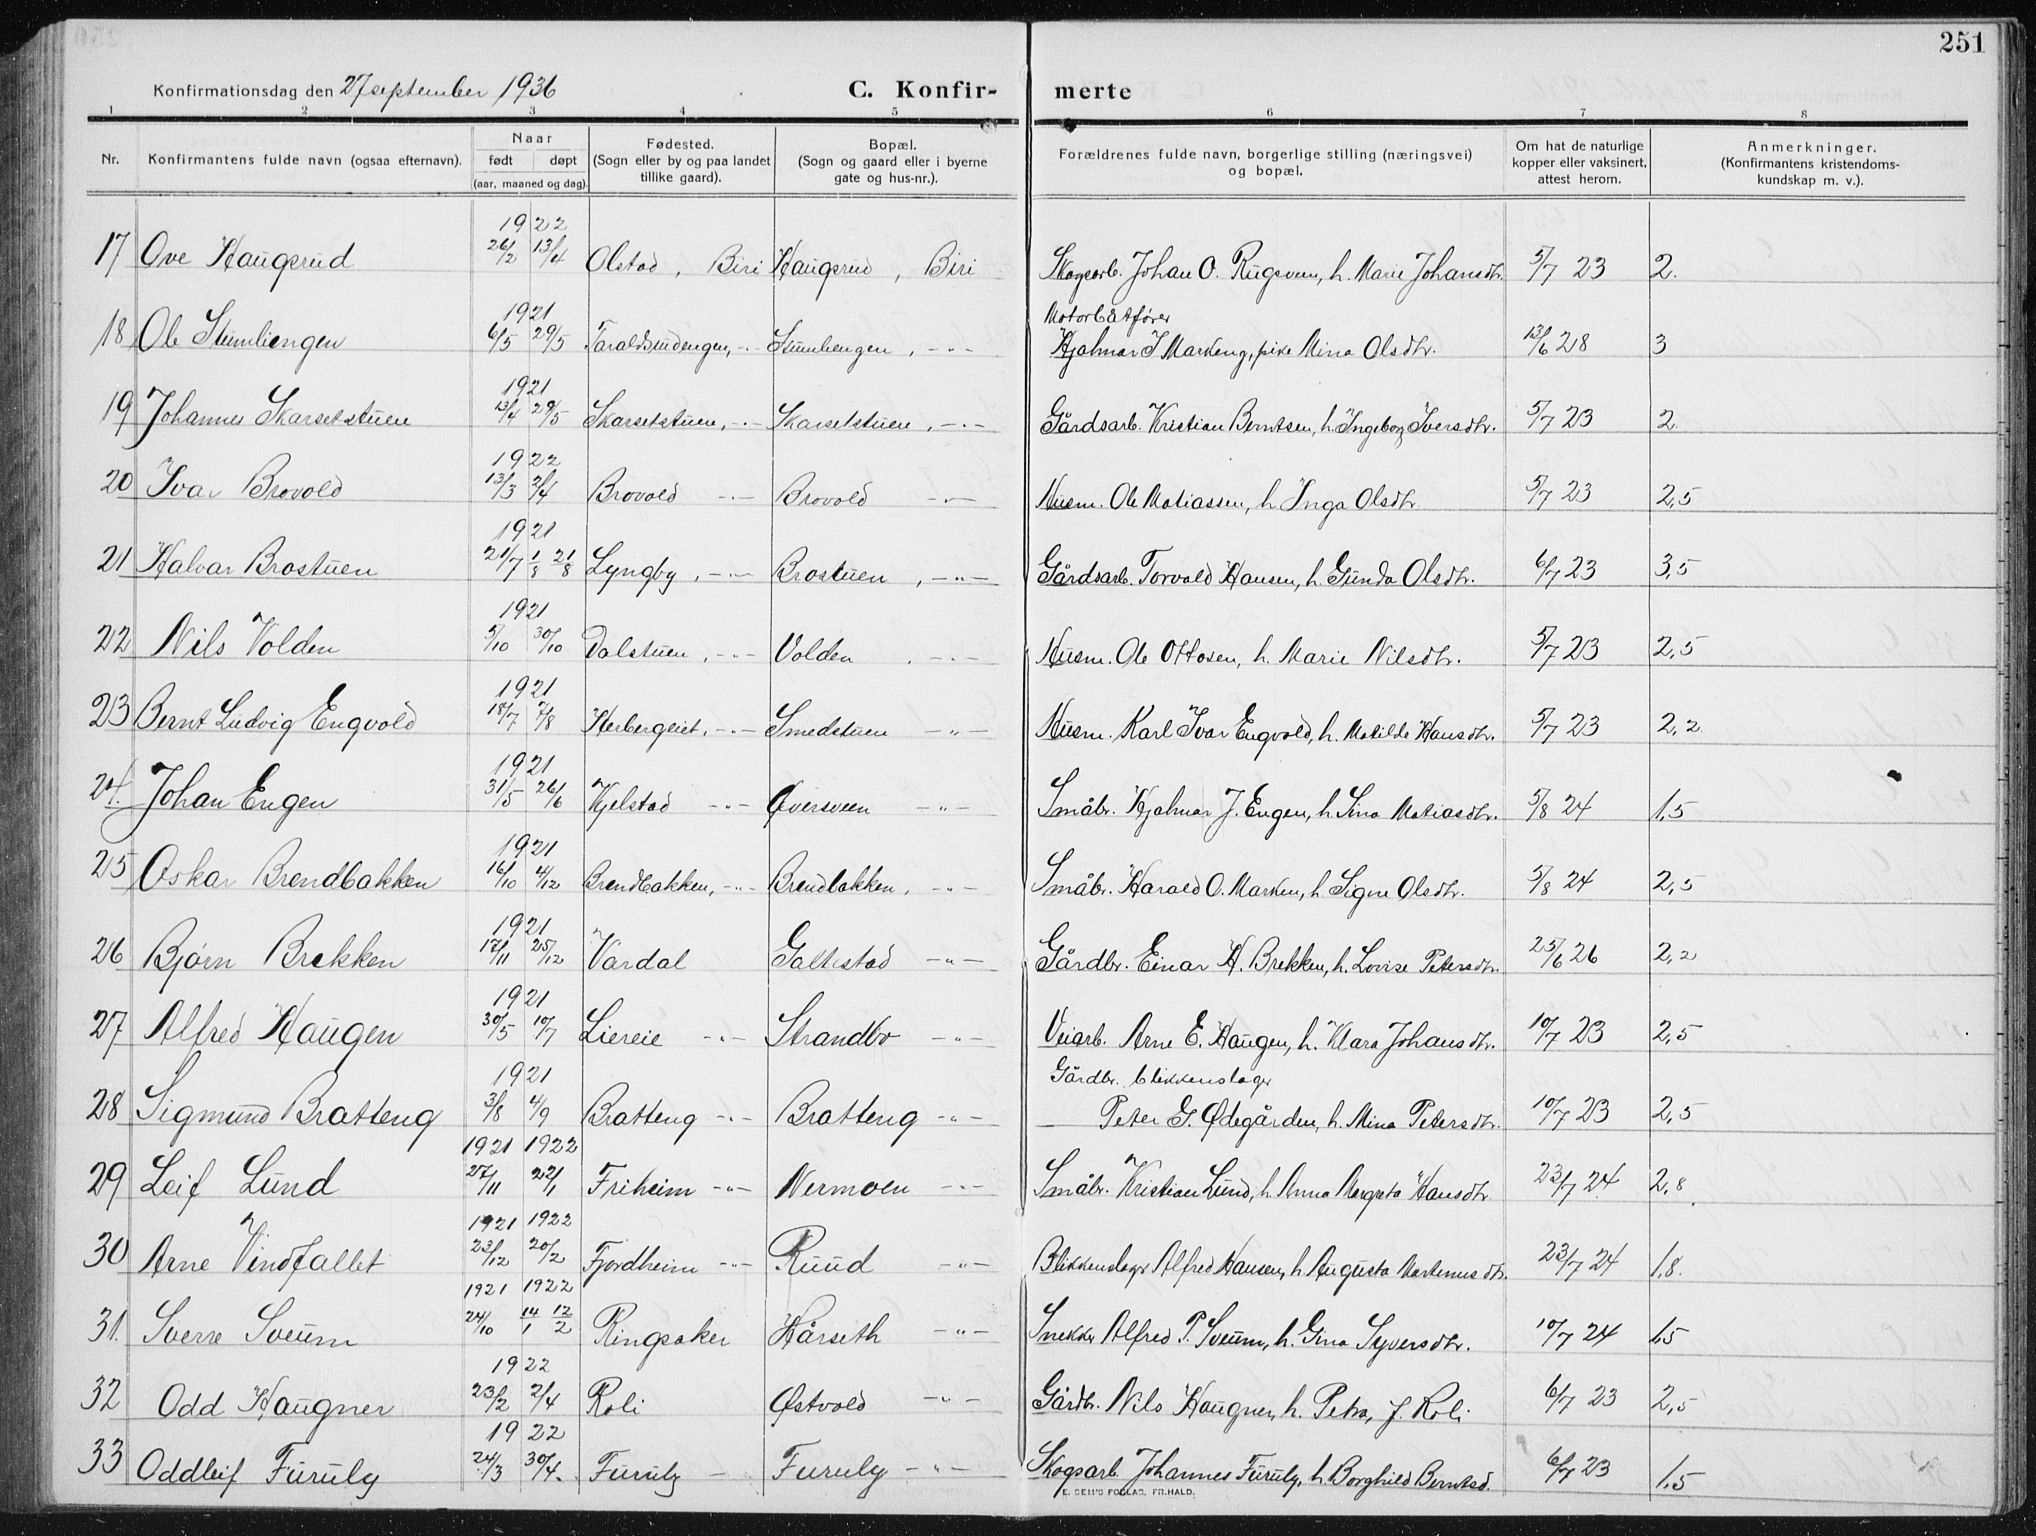 251
Konfirmationsdag den 27 september 1936 C. Konfir- merte
1 2 3 4 5 6 7 8
Nr. Konfirmantens fulde navn (ogsaa efternavn). Naar født døpt (aar, maaned og dag). Fødested. (Sogn eller by og paa landet tillike gaard). Bopæl. (Sogn og gaard eller i byerne gate og hus-nr.). Forældrenes fulde navn, borgerlige stilling (næringsvei) og bopæl. Om hat de naturlige kopper eller vaksinert, attest herom. Anmerkninger. (Konfirmantens kristendoms- kundskap m. v.).
1922
17 Ove Haugsrud 26/2 13/4 Olstad, Biri Haugsrud, Biri Skogsarb. Johan O. Rugsveen, h. Marie Johansdtr. 5/7 23 2.
1921 Motorbåtfører
18 Ole Stumliengen 6/5 29/5 Taraldsrudengen, -"- Stumliengen, -"- Hjalmar J Markeng, pike Mina Olsdtr. 13/6 28 3
1921
19 Johannes Skarsetstuen 13/4 29/5 Skarsetstuen, -"- Skarsetstuen, -"- Gårdsarb. Kristian Berntsen, h. Ingeborg Iversdtr. 5/7 23 2
1922
20 Ivar Brovold 13/3 2/4 Brovold -"- Brovold -"- Husm. Ole Matiassen, h Inga Olsdtr. 5/7 23 2,5
1921
21 Halvar Brostuen 21/7 1/8 21/8 Lyngby, -"- Brostuen, -"- Gårdsarb. Torvald Hansen, h. Gunda Olsdtr. 6/7 23 3,5
1921
22 Nils Volden 5/10 30/10 Dalstuen, -"- Volden, -"- Husm. Ole Ottosen, h. Marie Nilsdtr. 5/7 23 2,5
1921
23 Bernt Ludvig Engvold 18/7 7/8 Herbergeiet, -"- Smedstuen -"- Husm. Karl Ivar Engvold, h. Matilde Hansdtr. 5/7 23 2,2
1921
24. Johan Engen 31/5 26/6 Kjelstad -"- Øversveen -"- Småbr. Hjalmar J. Engen, h Sina Matiasdtr. 5/8 24 1,5
1921
25 Oskar Brendbakken 16/10 4/12 Brendbakken, -"- Brendbakken, -"- Småbr. Harald O. Marken, h Signe Olsdtr. 5/8 24 2,5
1921
26 Bjørn Brekken 17/11 25/12 Vardal Galtestad -"- Gårdbr. Einar H. Brekken, h. Lovise Petersdtr. 25/6 26 2,2
1921
27 Alfred Haugen 30/5 10/7 Liereie -"- Strandbo -"- Veiarb. Arne E. Haugen, h. Klara Johansdtr. 10/7 23 2,5
1921 Gårdbr. blikkenslager
28 Sigmund Bratteng 3/8 4/9 Bratteng -"- Bratteng -"- Peter G. Ødegården, h. Mina Petersdtr. 10/7 23 2,5
1921 1922
29 Leif Lund 27/11 22/1 Friheim -"- Nermoen -"- Småbr. Kristian Lund, h Anna Margreta Hansdtr. 23/7 24 2,8
1921 1922
30 Arne Vindfallet 23/12 20/2 Fjordheim -"- Ruud -"- Blikkenslager Alfred Hansen, h. Augusta Martinusdtr. 23/7 24 1,8.
1921 1922
31. Sverre Sveum 24/10 14/1 12/2 Ringsaker Hårseth -"- Snekker Alfred P. Sveum, h. Gina Syversdtr. 10/7 24 1,5
1922
32 Odd Haugner 23/2 2/4 Roli Østvold -"- Gårdbr. Nils Haugner, h. Petra, f. Roli 6/7 23 2,5
1922
33 Oddleif Furuly 24/3 30/4. Furuly - Furuly -"- Skogsarb. Johannes Furuly, h. Borghild Berntsd. 6/7 23 1,5
E. SEM'S FORLAG, FR.HALD.